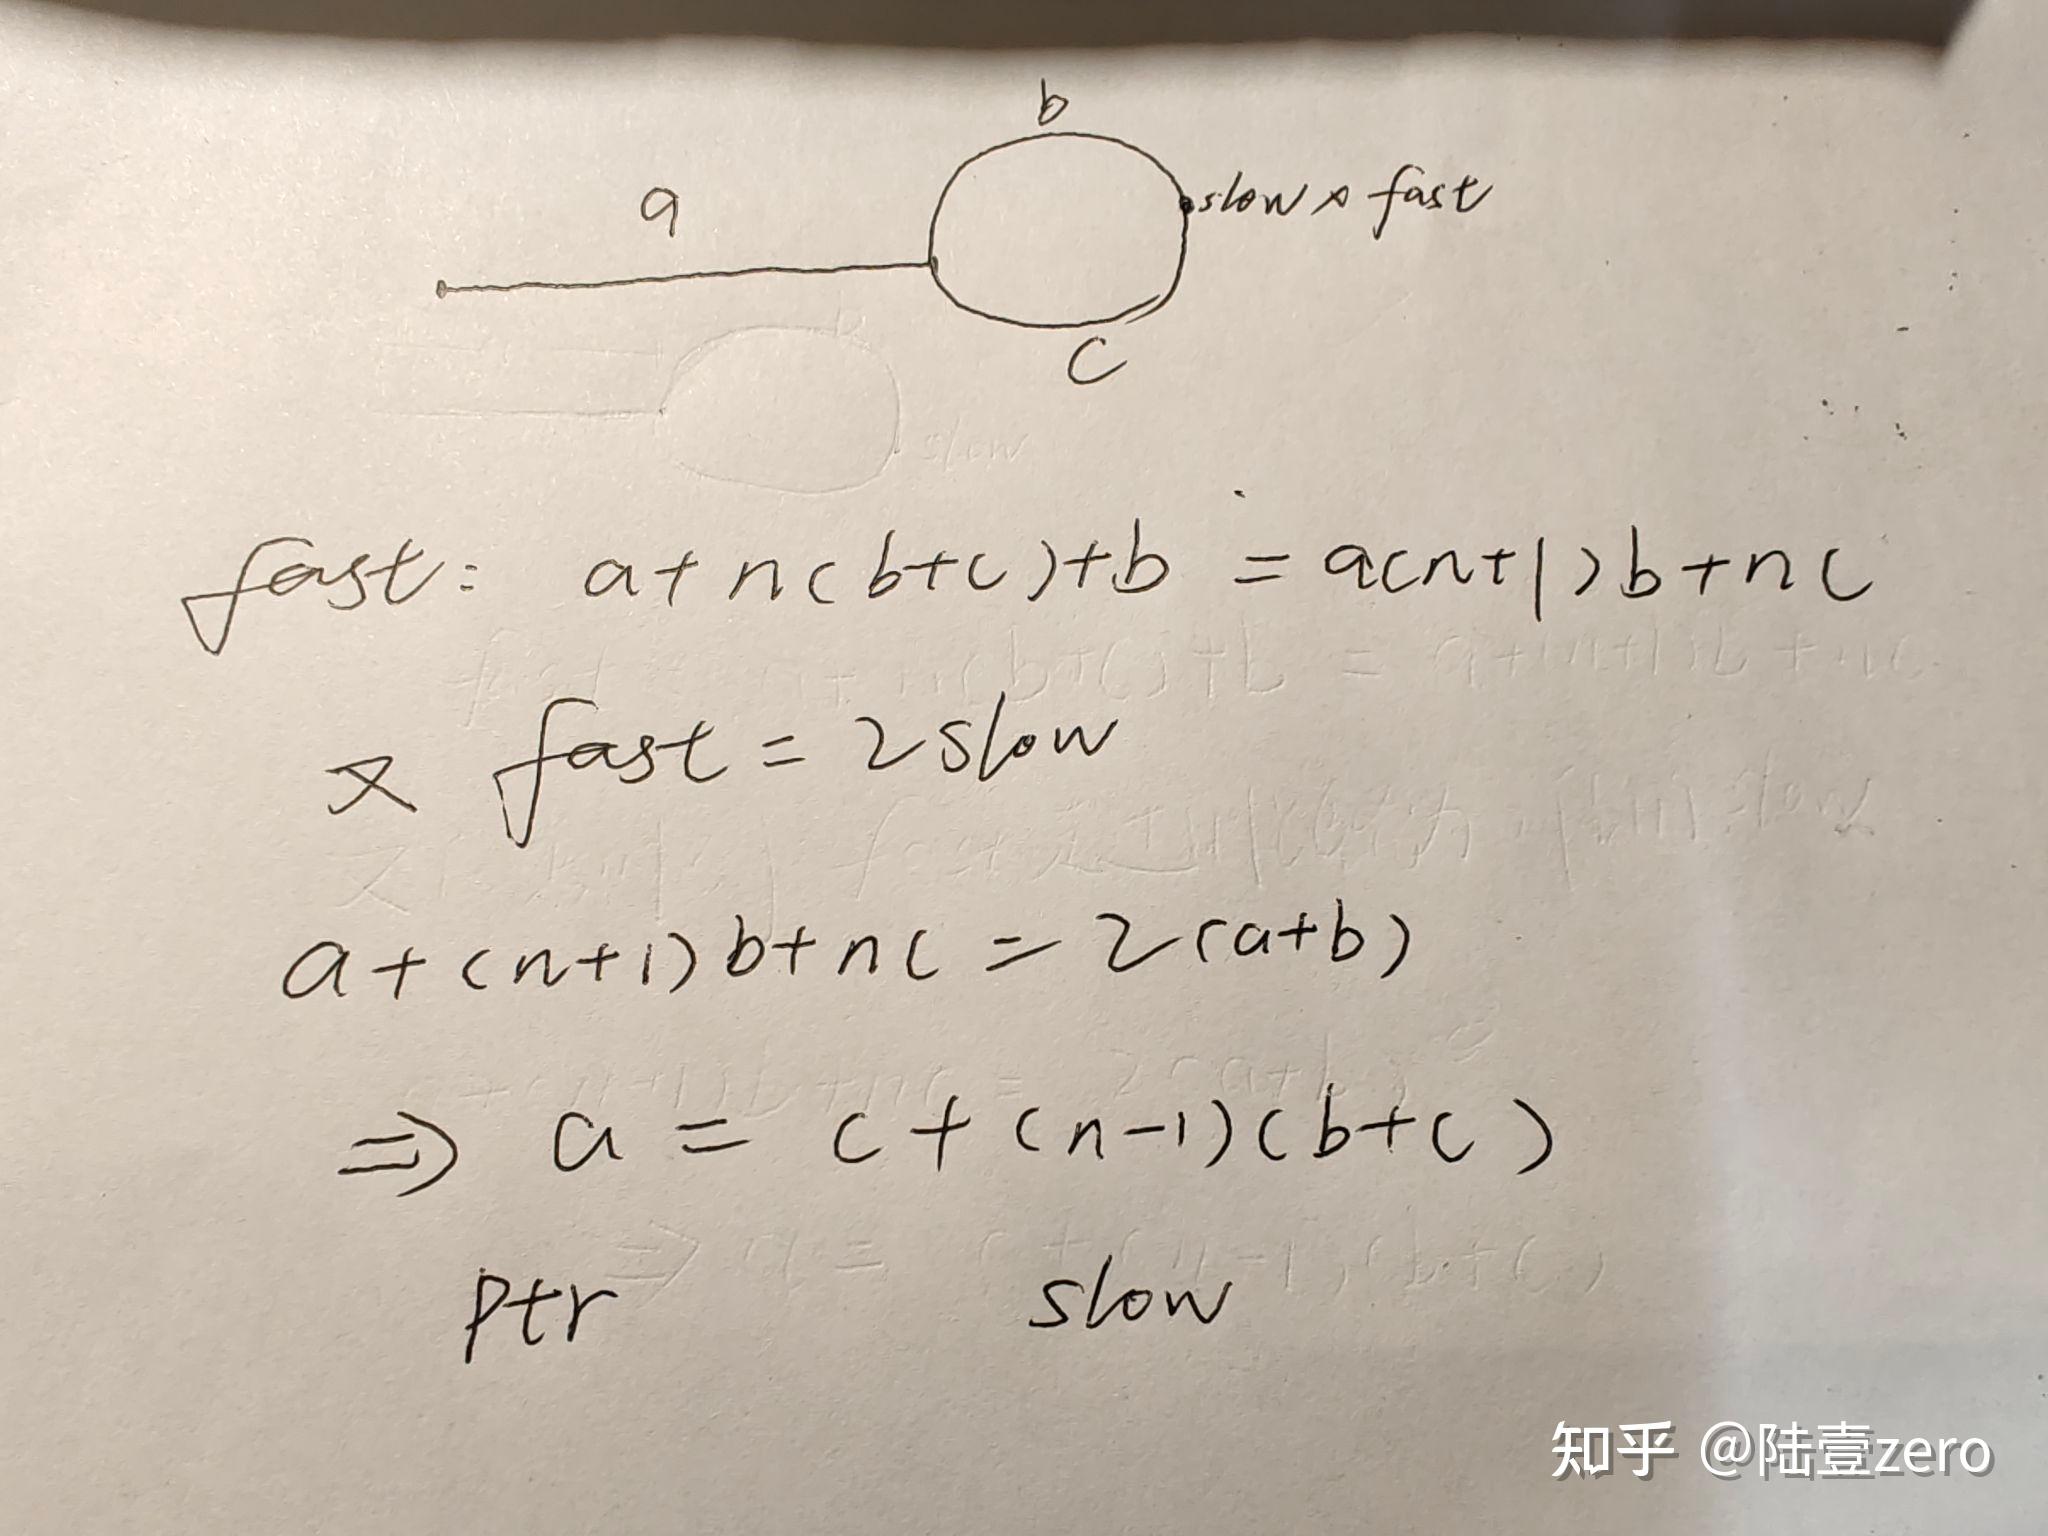 b
a
slow 又 fast
c
fast: a+n(b+c)+b = a(n+1)b+nc
又 fast = 2slow
a+(n+1)b+nc = 2(a+b)
⇒ a = c+(n-1)(b+c)
ptr slow
知乎 @陆壹zero